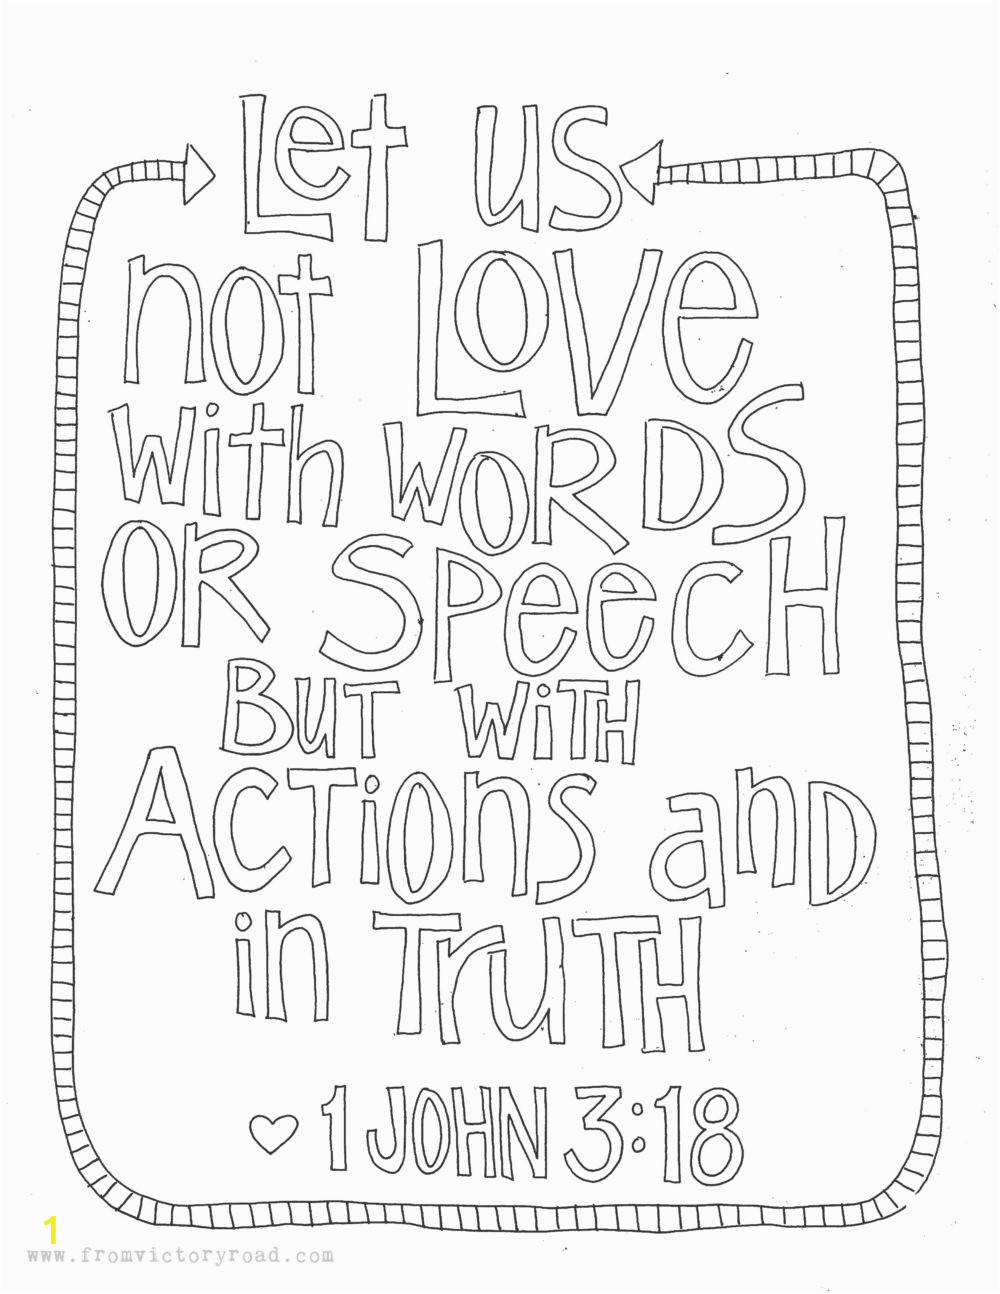 Let us
not Love
with WORDS
OR SPEECH
BUT WITH
ACTIONS and
in TRUTH
1 JOHN 3:18
1
www.fromvictoryroad.com